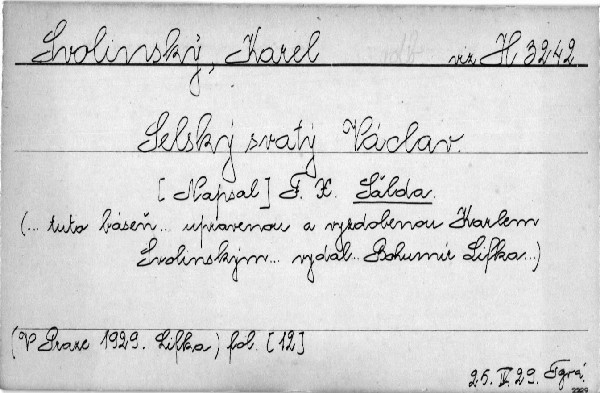 Svolinský, Karel viz H 3242
Selský svatý Václav.
[Napsal] F. X. Šalda.
(... tuto báseň... upravenou a vyzdobenou Karlem
Svolinským... vydal... Bohumír Lifka...)
(V Praze 1929. Lifka) fol. [12]